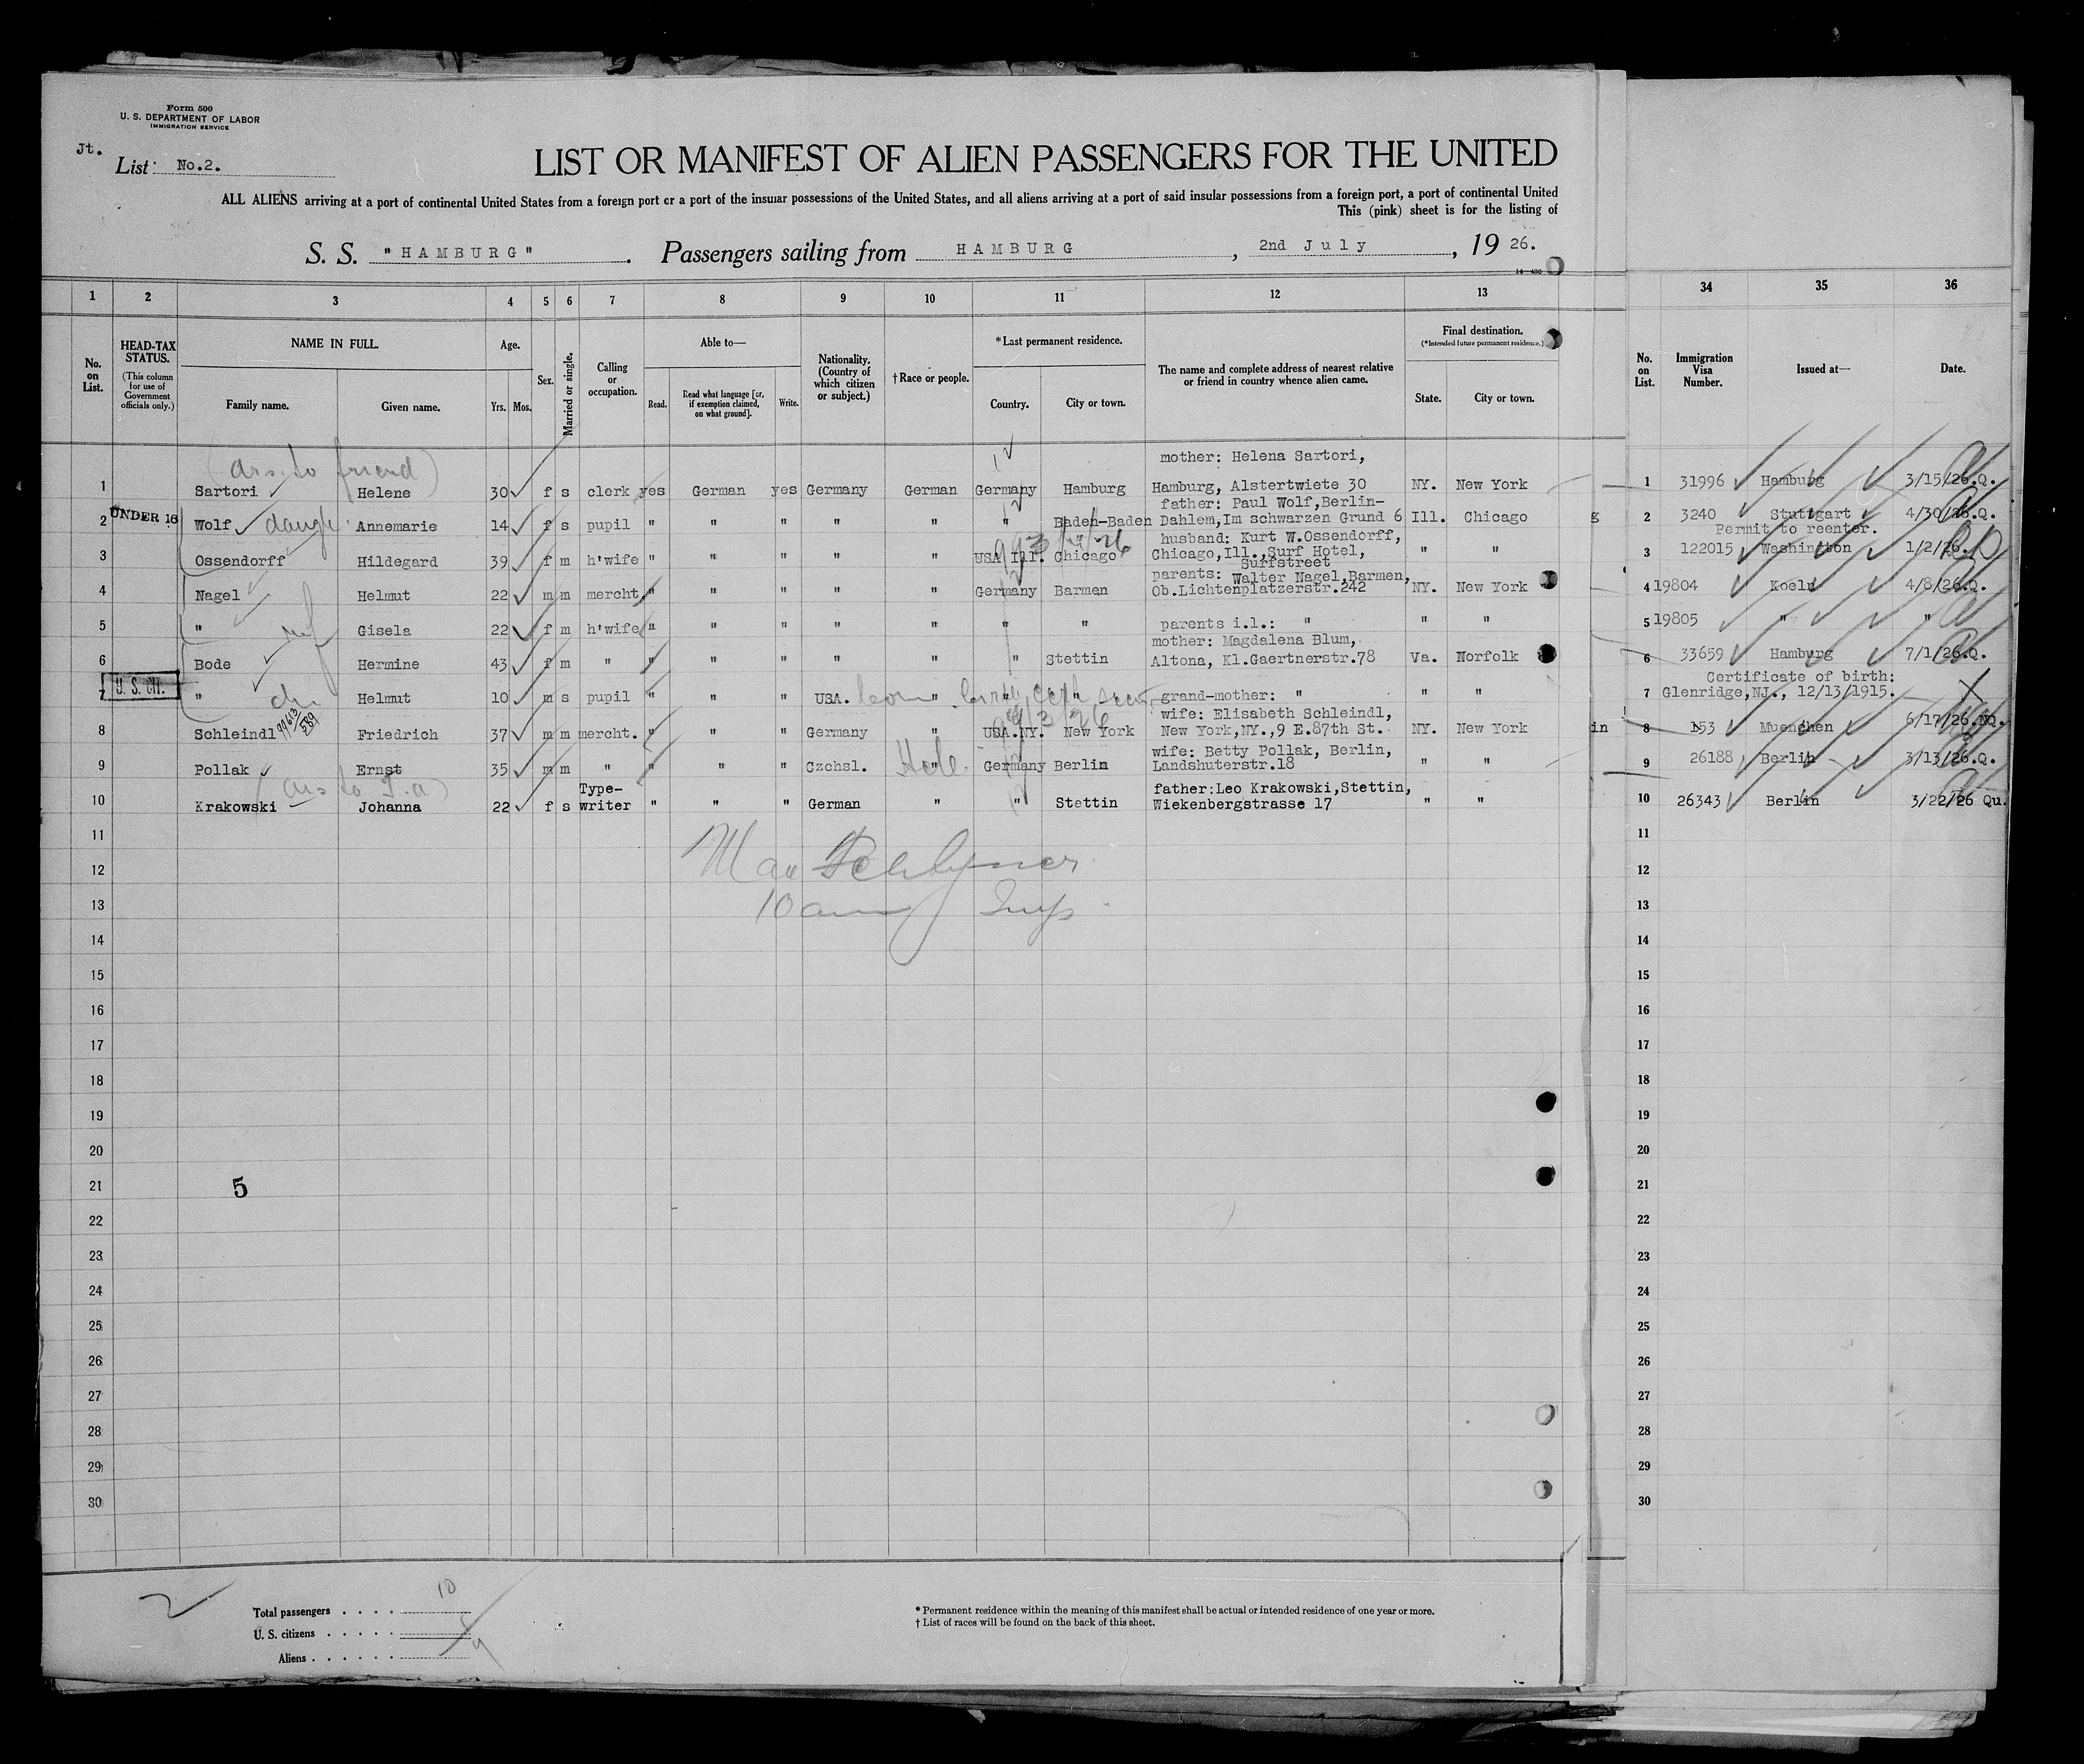 Form 500
U. S. DEPARTMENT OF LABOR
IMMIGRATION SERVICE
Jt.
List No.2.
LIST OR MANIFEST OF ALIEN PASSENGERS FOR THE UNITED
ALL ALIENS arriving at a port of continental United States from a foreign port or a port of the insular possessions of the United States, and all aliens arriving at a port of said insular possessions from a foreign port, a port of continental United
This (pink) sheet is for the listing of
S. S. "HAMBURG". Passengers sailing from HAMBURG, 2nd July, 19 26.
1 2 3 4 5 6 7 8 9 10 11 12 13 34 35 36
No. on List.
HEAD-TAX STATUS. (This column for use of Government officials only.)
NAME IN FULL. Family name. Given name.
Age. Yrs. Mos.
Sex.
Married or single.
Calling or occupation.
Able to— Read. Read what language [or, if exemption claimed, on what ground]. Write.
Nationality. (Country of which citizen or subject.)
†Race or people.
*Last permanent residence. Country. City or town.
The name and complete address of nearest relative or friend in country whence alien came.
Final destination. (*Intended future permanent residence.) State. City or town.
No. on List.
Immigration Visa Number.
Issued at—
Date.
mother: Helena Sartori,
1 Sartori Helene 30 f s clerk yes German yes Germany German Germany Hamburg Hamburg, Alstertwiete 30 NY. New York 1 31996 Hamburg 3/15/26.Q.
father: Paul Wolf,Berlin-
2 UNDER 16 Wolf Annemarie 14 f s pupil " " " " " " Baden-Baden Dahlem,Im schwarzen Grund 6 Ill. Chicago g 2 3240 Stuttgart 4/30/26.Q.
husband: Kurt W.Ossendorff, Permit to reenter.
3 Ossendorff Hildegard 39 f m h'wife " " " " " USA Ill. Chicago Chicago,Ill.,Surf Hotel, " " 3 122015 Washington 1/2/26.
Surfstreet
parents: Walter Nagel,Barmen,
4 Nagel Helmut 22 m m mercht. " " " " " Germany Barmen Ob.Lichtenplatzerstr.242 NY. New York 4 19804 Koeln 4/8/26.Q.
5 " Gisela 22 f m h'wife " " " " " " " parents i.l.: " " " 5 19805 " "
mother: Magdalena Blum,
6 Bode Hermine 43 f m " " " " " " " Stettin Altona, Kl.Gaertnerstr.78 Va. Norfolk 6 33659 Hamburg 7/1/26.Q.
Certificate of birth:
7 U. S. CIT. " Helmut 10 m s pupil " " " USA. " " " grand-mother: " " " 7 Glenridge,NJ., 12/13/1915.
wife: Elisabeth Schleindl,
8 Schleindl Friedrich 37 m m mercht. " " " Germany " USA.NY. New York New York,NY.,9 E.87th St. NY. New York in 8 153 Muenchen 6/17/26.NQ.
wife: Betty Pollak, Berlin,
9 Pollak Ernst 35 m m " " " " Czchsl. " Germany Berlin Landshuterstr.18 " " 9 26188 Berlin 3/13/26.Q.
Type- father:Leo Krakowski,Stettin,
10 Krakowski Johanna 22 f s writer " " " German " " Stettin Wiekenbergstrasse 17 " " 10 26343 Berlin 3/22/26 Qu.
11 11
12 12
13 13
14 14
15 15
16 16
17 17
18 18
19 19
20 20
21 5 21
22 22
23 23
24 24
25 25
26 26
27 27
28 28
29 29
30 30
Total passengers . . . . 10
U. S. citizens . . . . .
Aliens . . . . . .
* Permanent residence within the meaning of this manifest shall be actual or intended residence of one year or more.
† List of races will be found on the back of this sheet.